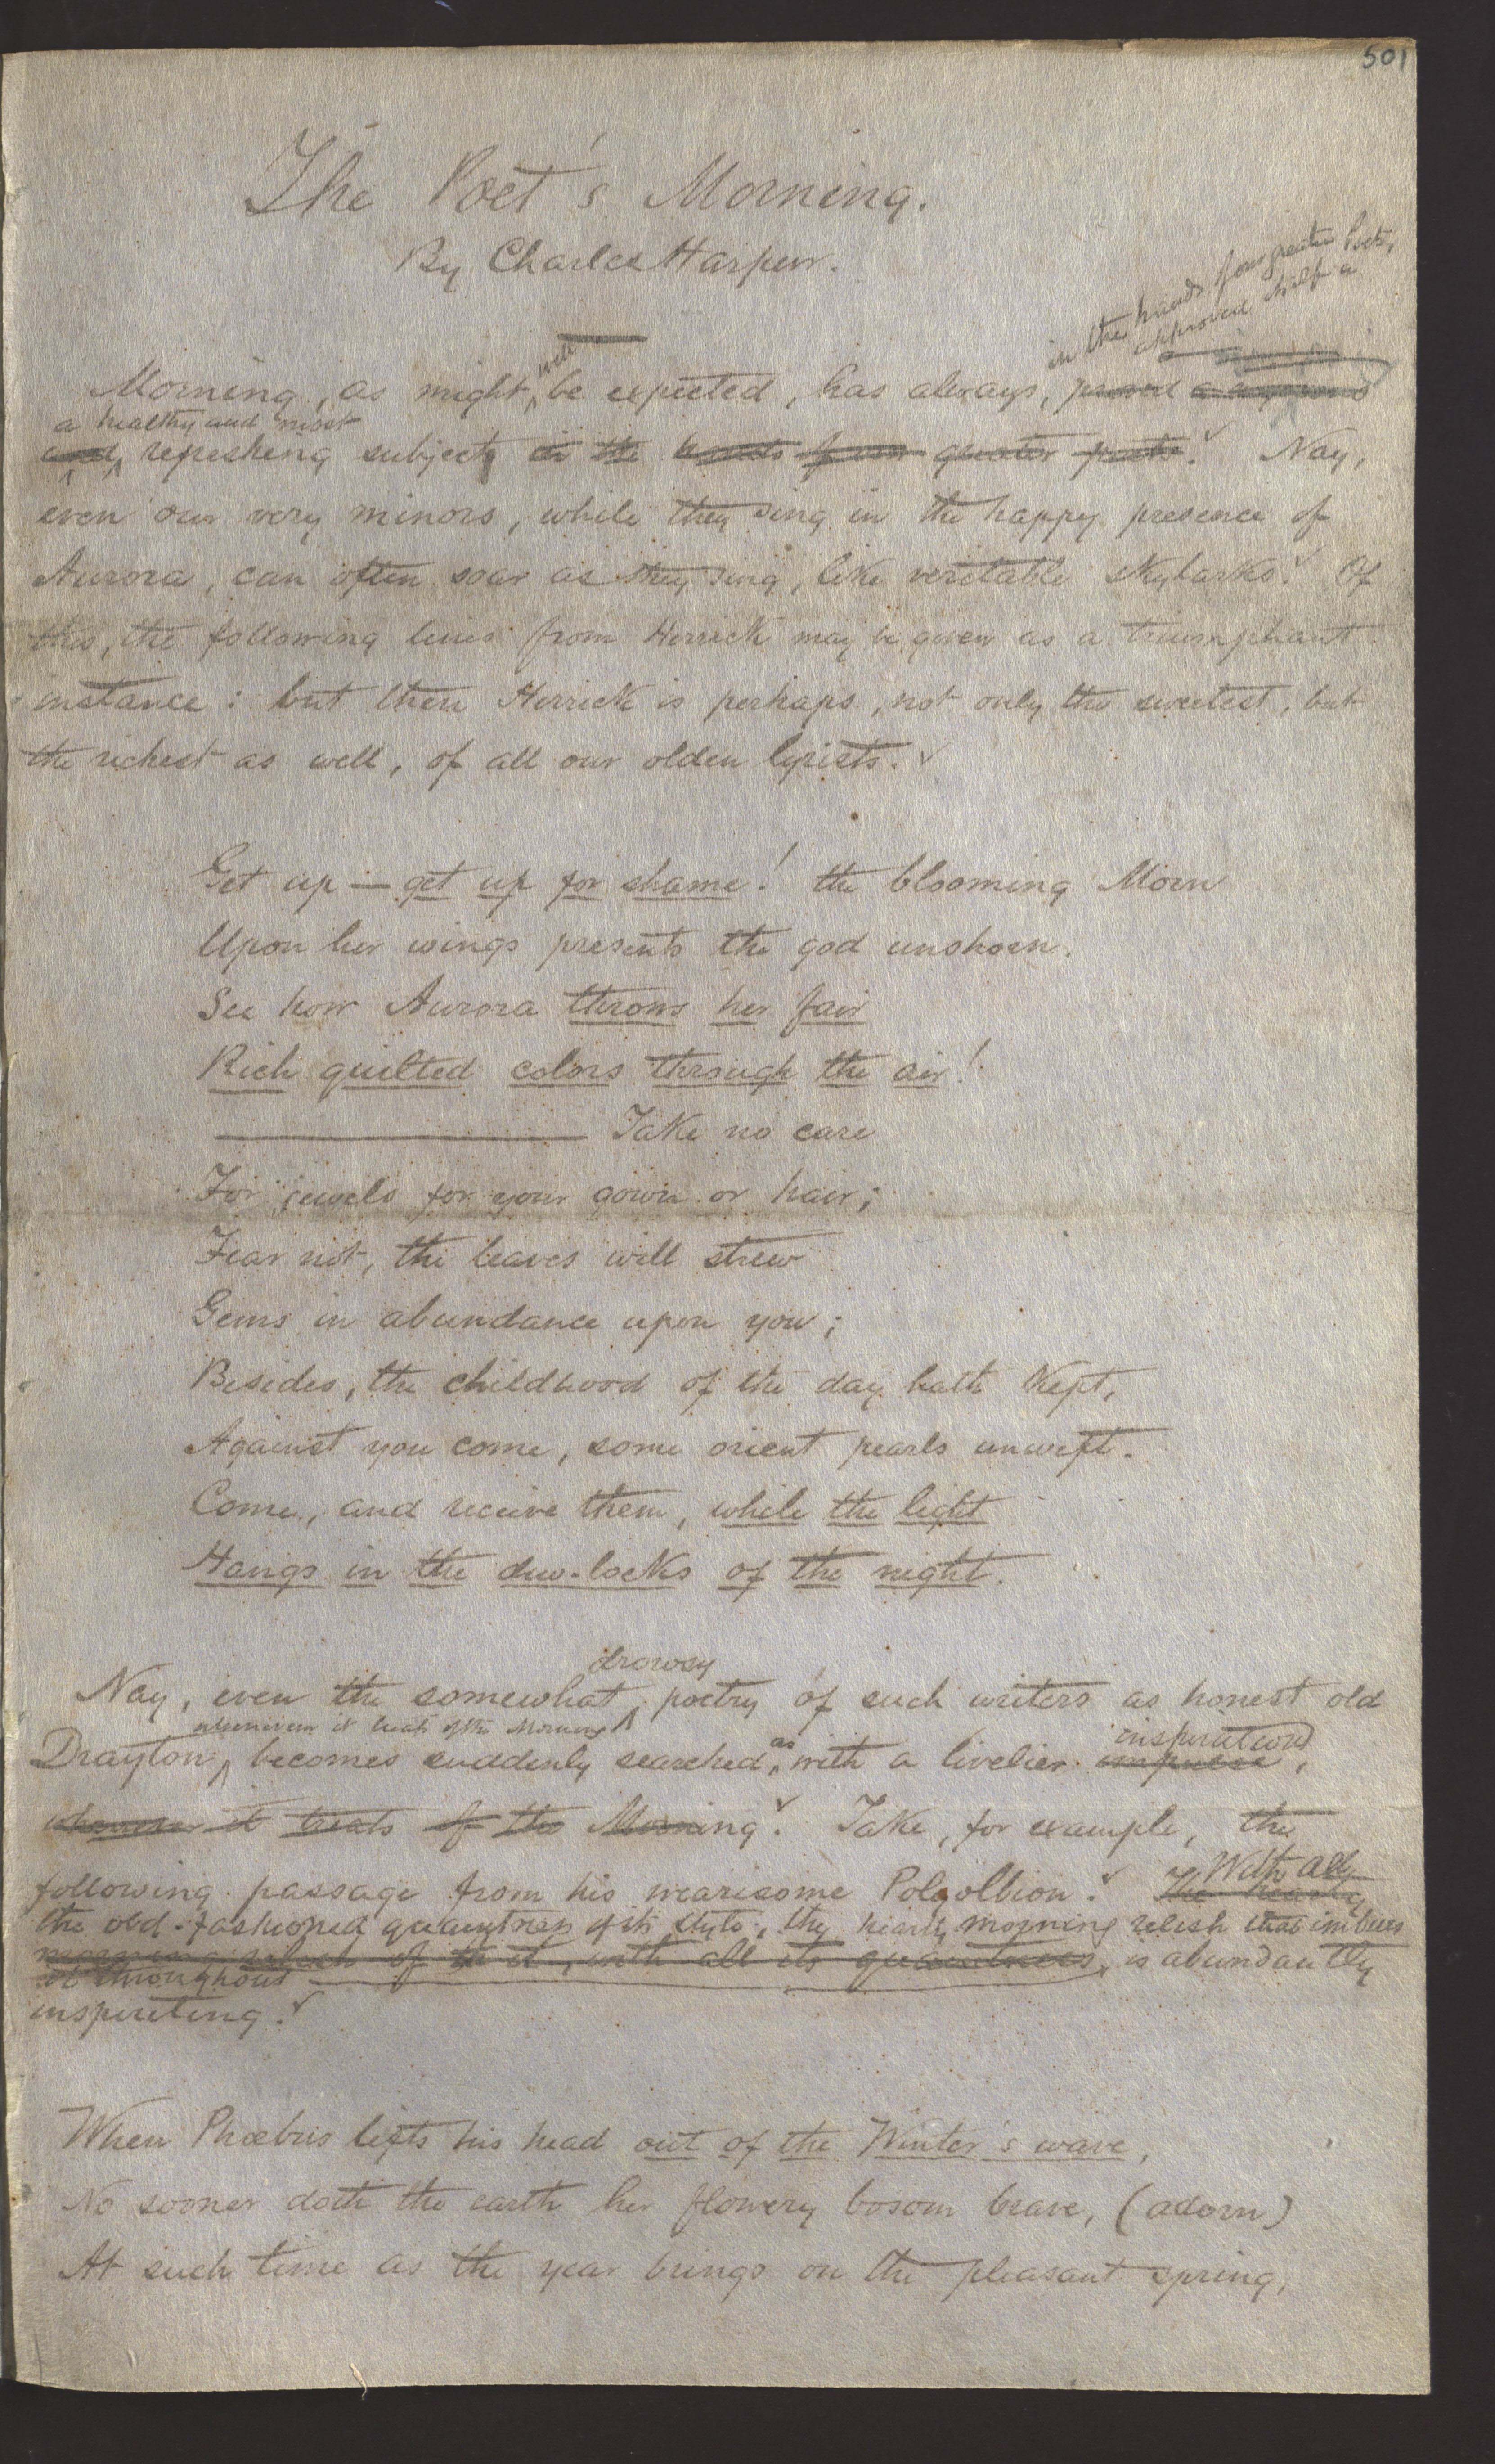 501
The Poet's Morning.
By Charles Harpur.
in the hands of our greater Poets,
approved itself a
well
Morning, as might be expected, has always, proved a
a healthy and most
refreshing subject in the hands of our greater poets. Nay,
even our very minors, while they sing in the happy presence of
Aurora, can often soar as they sing, like veritable skylarks. Of
this, the following lines from Herrick may be given as a triumphant
instance: but then Herrick is perhaps, not only the sweetest, but
the richest as well, of all our olden lyrists.
Get up — get up for shame! the blooming Morn
Upon her wings presents the god unshorn.
See how Aurora throws her fair
Rich quilted colors through the air!
——— Take no care
For jewels for your gown or hair;
Fear not, the leaves will strew
Gems in abundance upon you;
Besides, the childhood of the day hath kept,
Against you come, some orient pearls unwept.
Come, and receive them, while the light
Hangs in the dew-locks of the night.
drowsy
Nay, even the somewhat poetry of such writers as honest old
whenever it treats of the Morning
as inspiration
Drayton, becomes suddenly searched, with a livelier impulse,
whenever it treats of the Morning. Take, for example, the
following passage from his wearisome Polyolbion. The hearty
With all
the old-fashioned quaintness of its style, the hearty morning relish that imbues
morning relish of it, with all its quaintness, is abundantly
it throughout
inspiriting.
When Phœbus lifts his head out of the Winter's wave,
No sooner doth the earth her flowery bosom brave, (adorn)
At such time as the year brings on the pleasant spring,